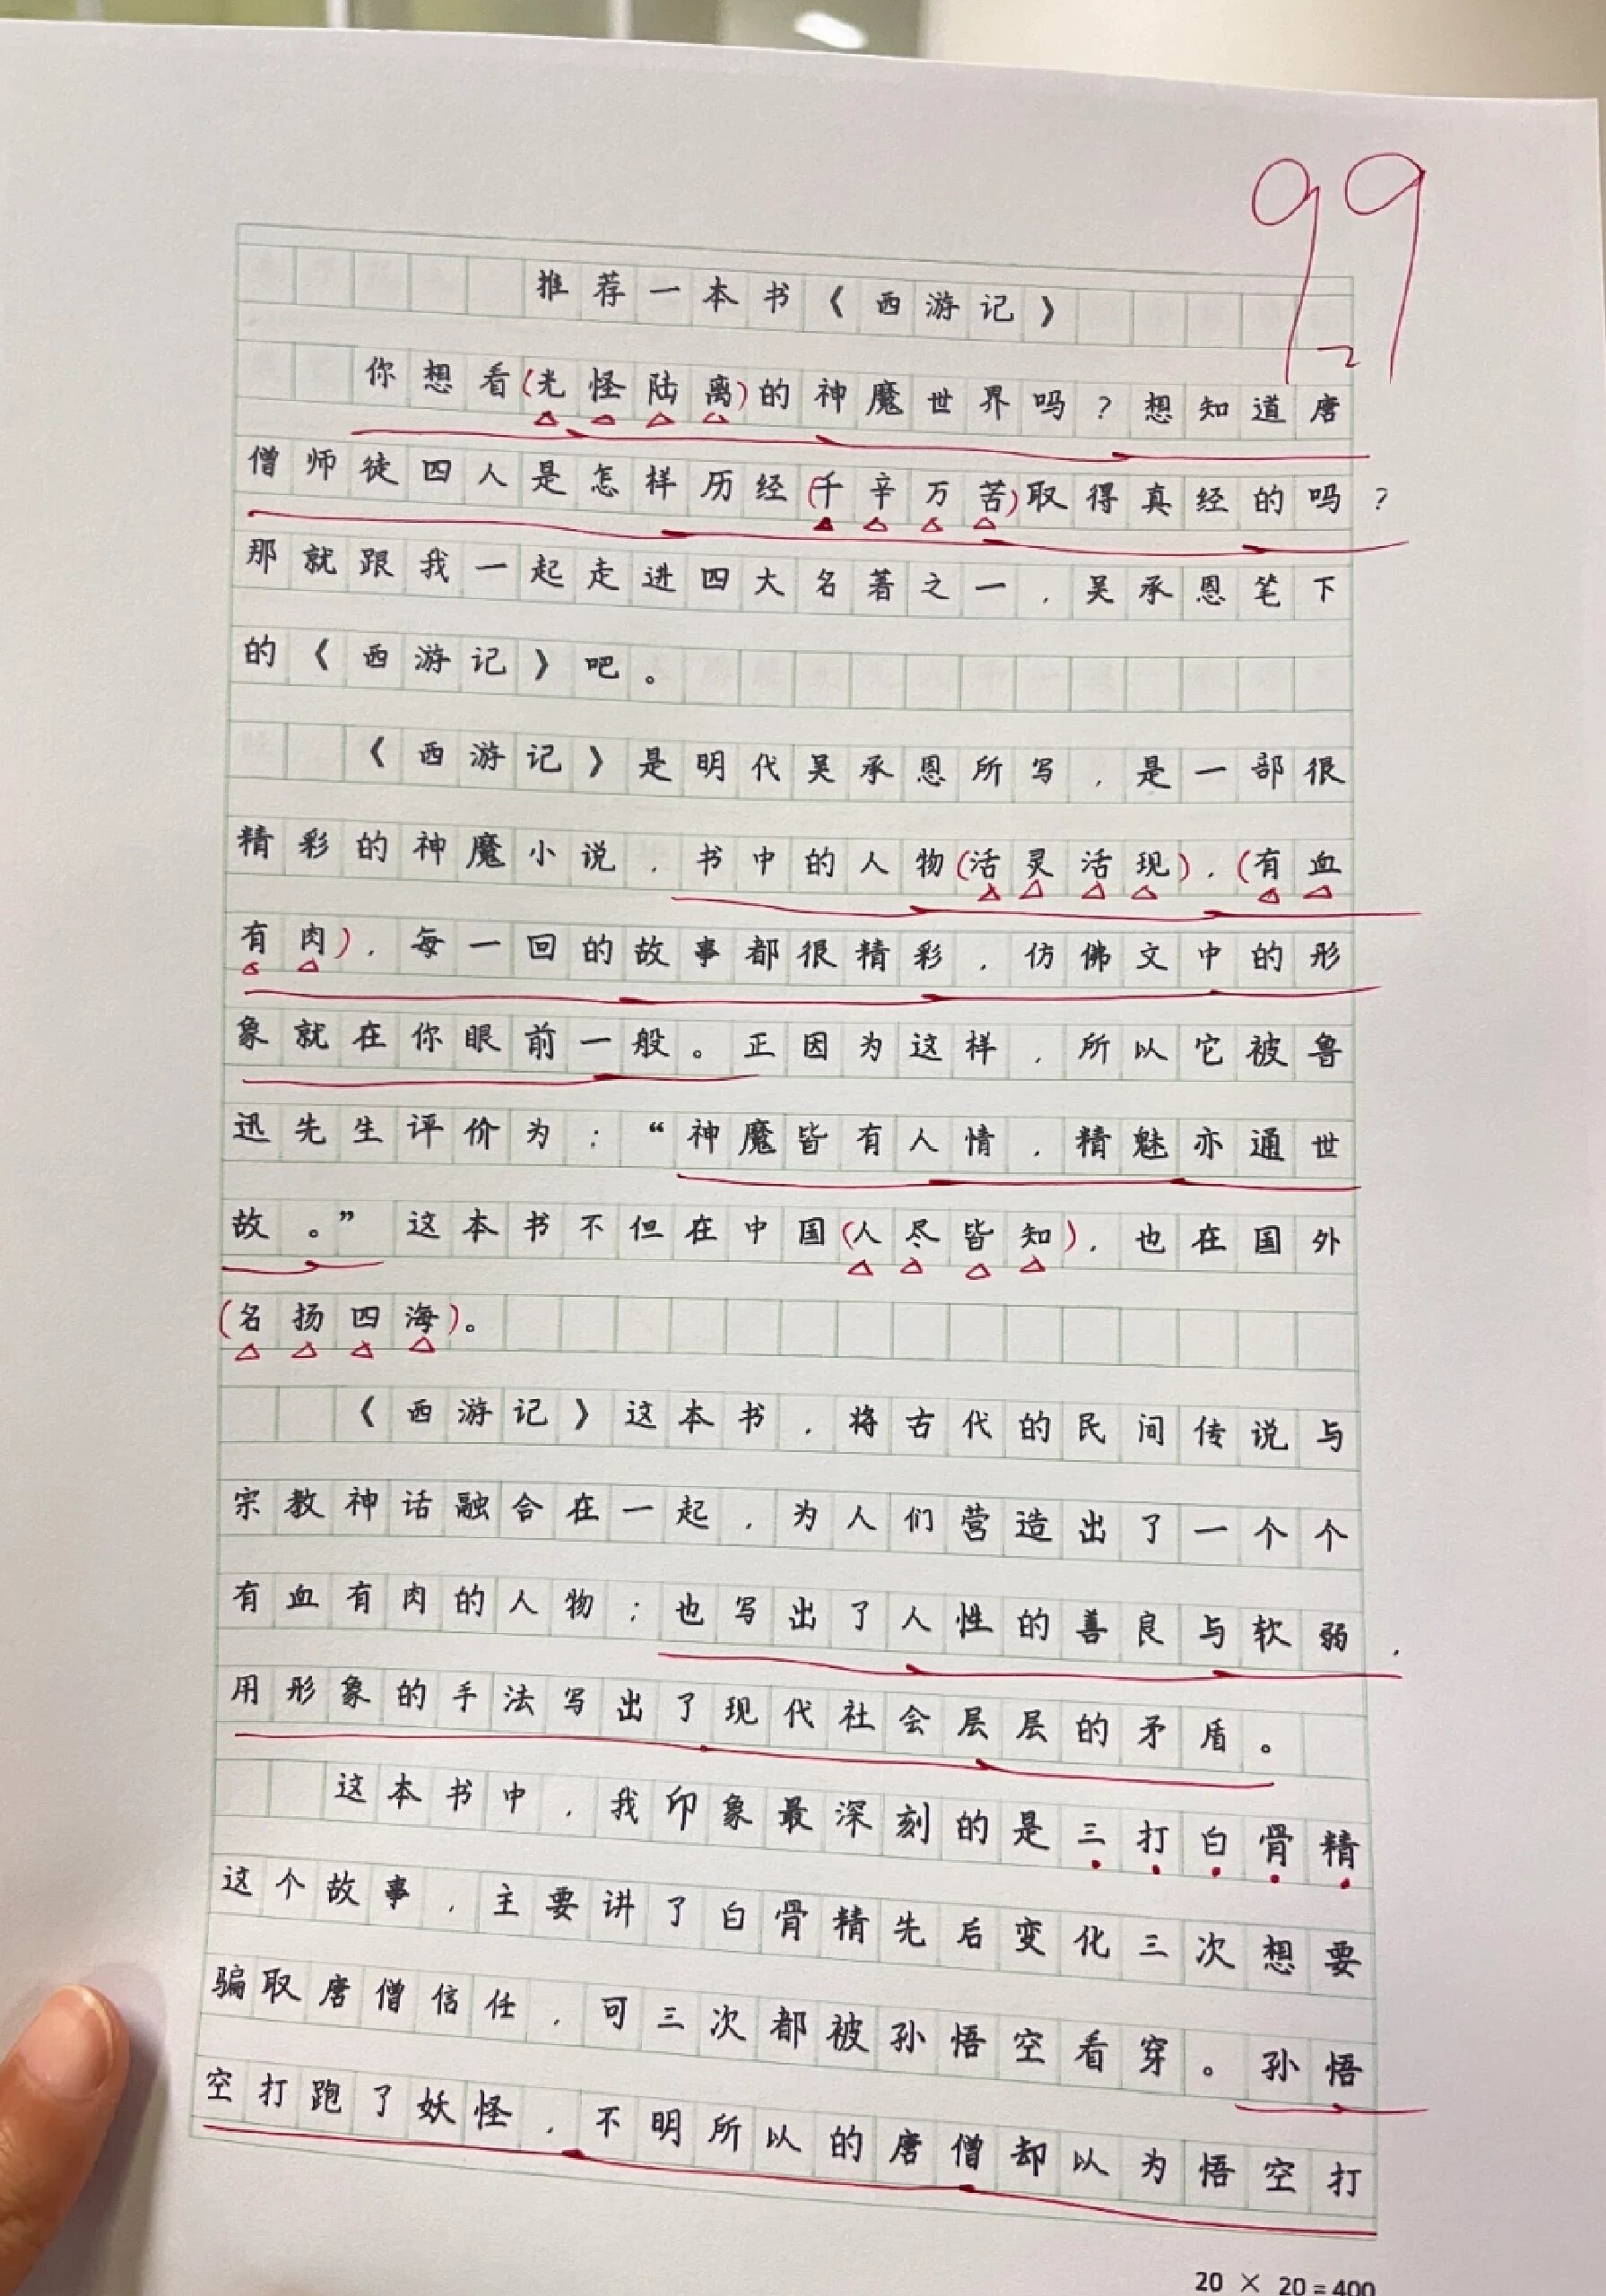 99
推荐一本书《西游记》
你想看(光怪陆离)的神魔世界吗?想知道唐
僧师徒四人是怎样历经(千辛万苦)取得真经的吗?
那就跟我一起走进四大名著之一,吴承恩笔下
的《西游记》吧。
《西游记》是明代吴承恩所写,是一部很
精彩的神魔小说,书中的人物(活灵活现),(有血
有肉),每一回的故事都很精彩,仿佛文中的形
象就在你眼前一般。正因为这样,所以它被鲁
迅先生评价为:“神魔皆有人情,精魅亦通世
故。”这本书不但在中国(人尽皆知),也在国外
(名扬四海)。
《西游记》这本书,将古代的民间传说与
宗教神话融合在一起,为人们营造出了一个个
有血有肉的人物;也写出了人性的善良与软弱,
用形象的手法写出了现代社会层层的矛盾。
这本书中,我印象最深刻的是三打白骨精
这个故事,主要讲了白骨精先后变化三次想要
骗取唐僧信任,可三次都被孙悟空看穿。孙悟
空打跑了妖怪,不明所以的唐僧却以为悟空打
20 × 20=400